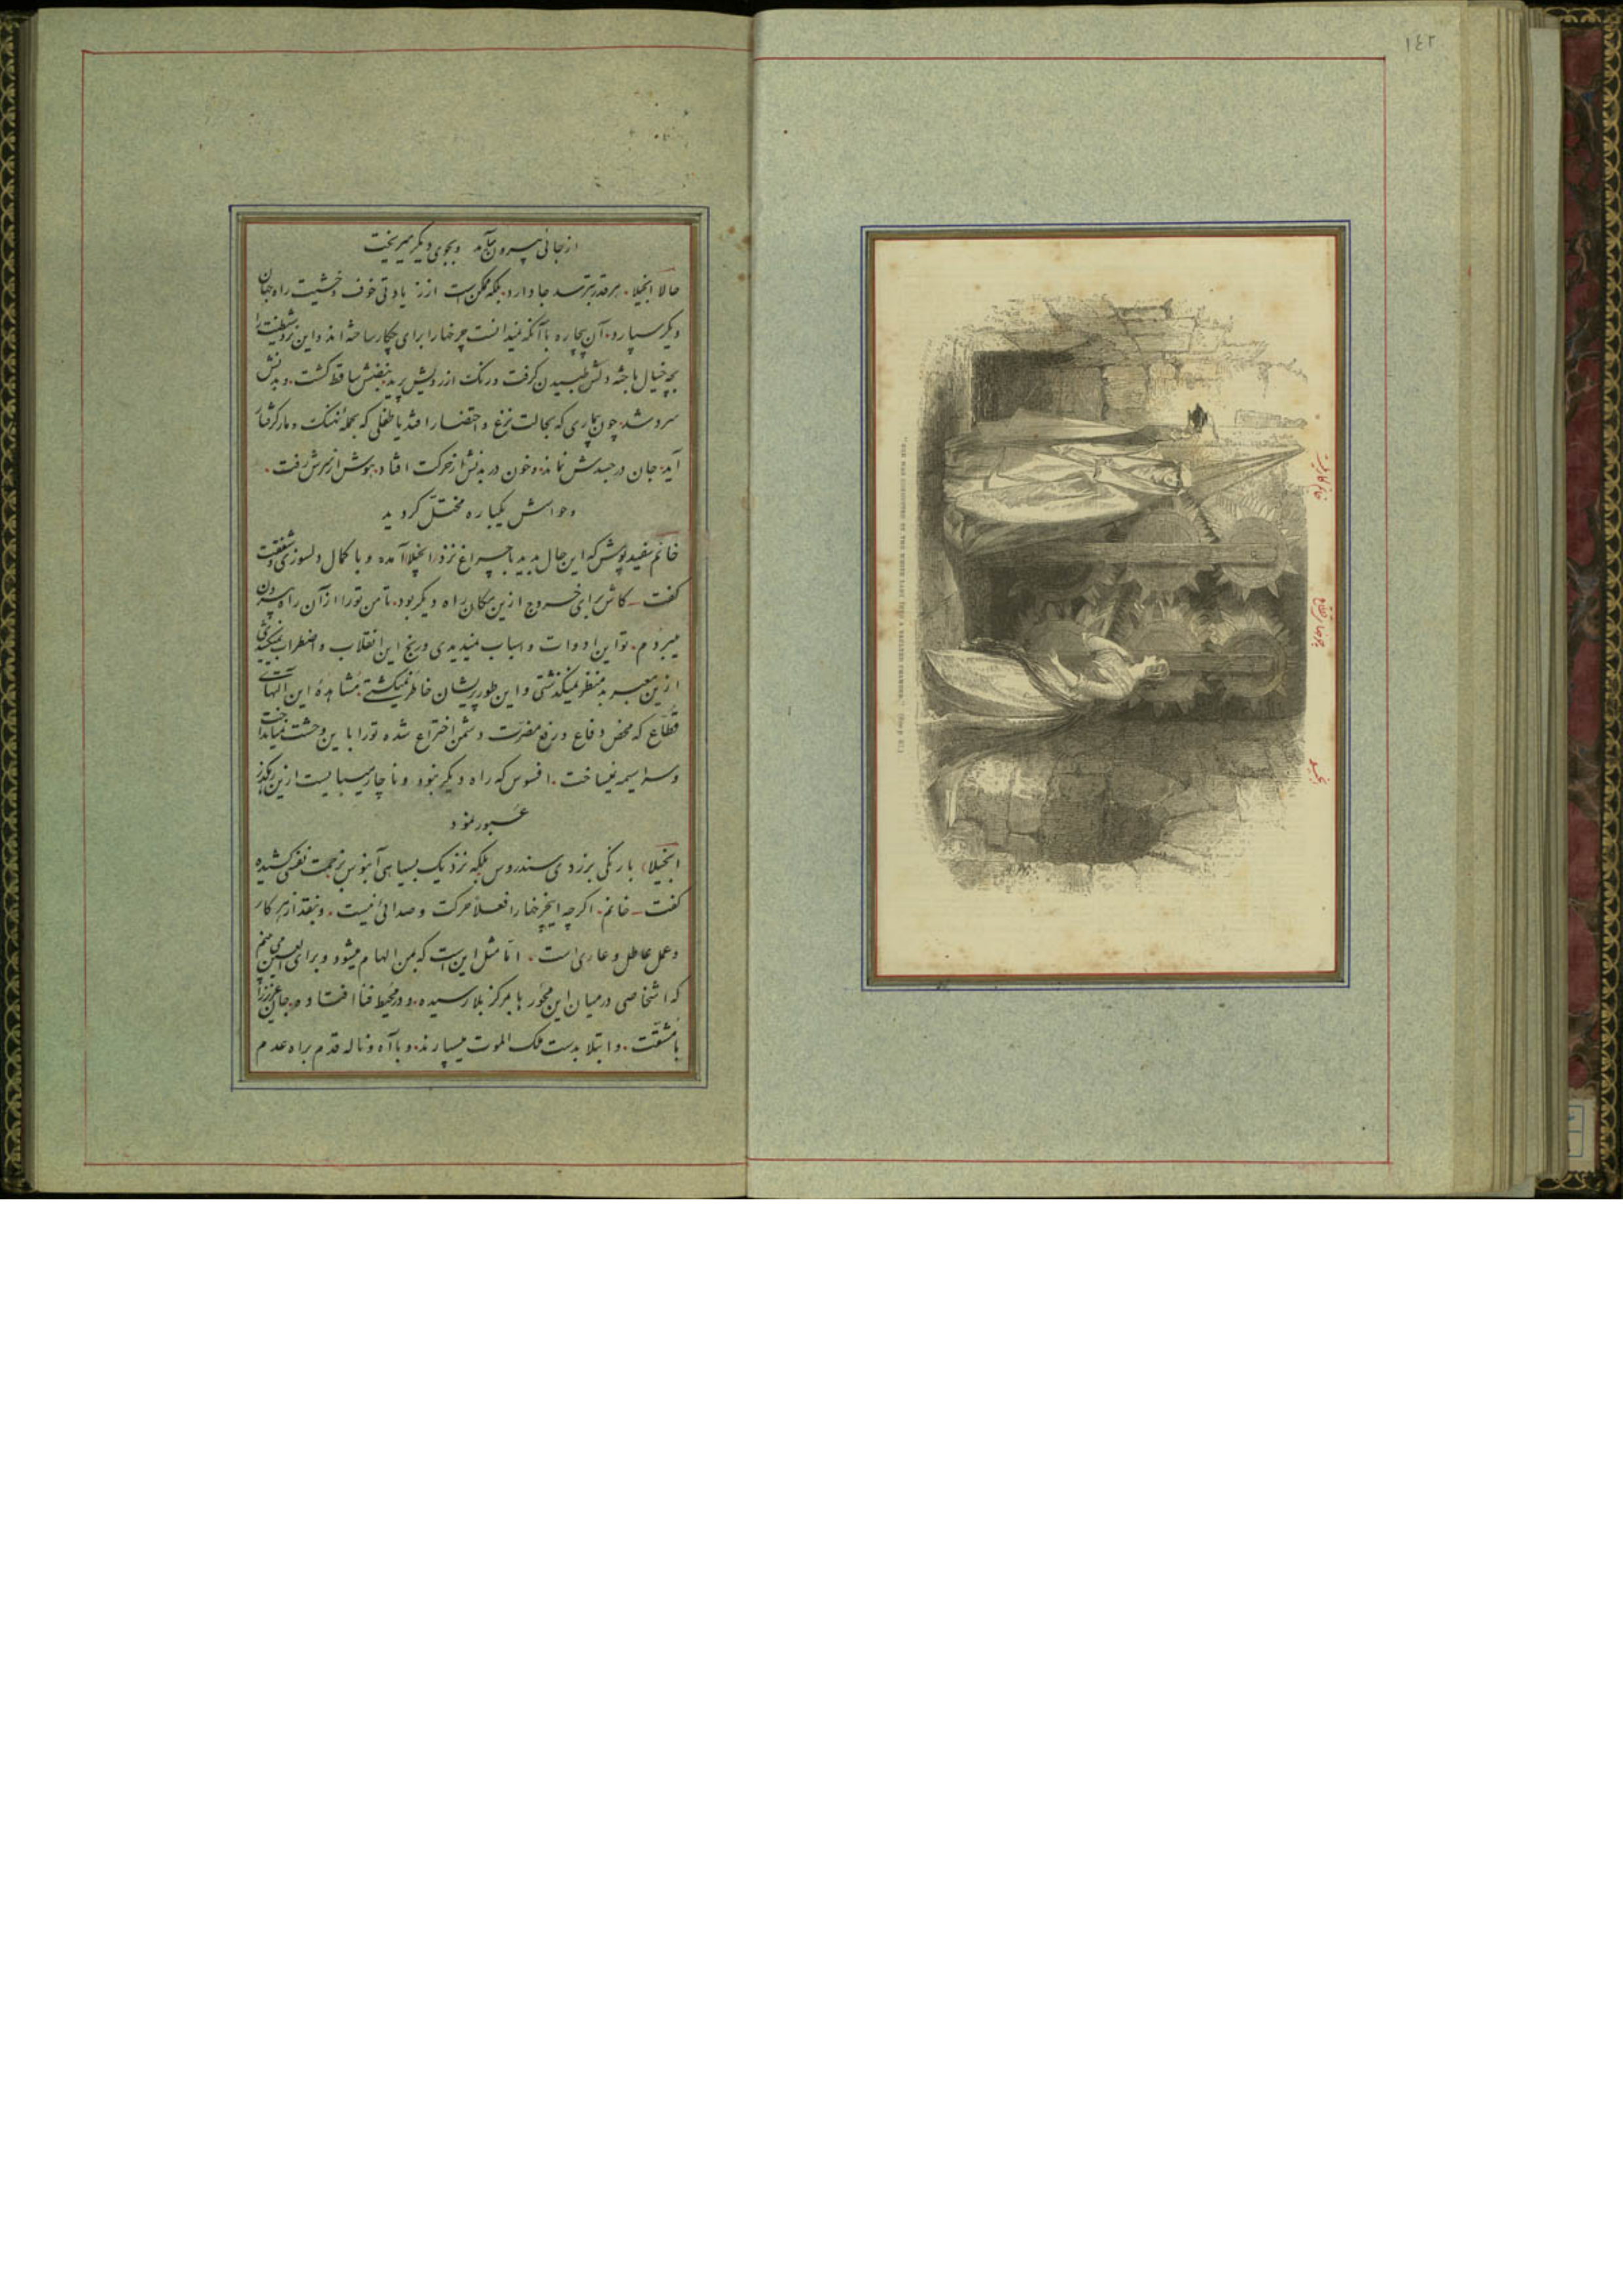 ١٤٢
از جائی بیرون میآمد و بجوی دیگر میریخت
حالا انجیلا. هر قدر بترسد جا دارد. بلکه ممکن است از زیادتی خوف و خشیت راه جهان
دیگر سپارد. آن بیچاره با آنکه نمیدانست چرخها را برای چکار ساخته اند و این
بچه خیال باخته دلش طپیدن گرفت و رنگ از رویش پرید نبضش ساقط گشت. و بدنش
سرد شد. چون بیماری که بحالت نزع و احتضار افتد یا طفلی که بحمله نهنگ و مار گرفتار
آید. جان در جسدش نماند. و خون در بدنش از حرکت افتاد. هوش از سرش رفت.
و حواسش یکباره مختل گردید
خانم سفیدپوش که این حال بدید با چراغ نزد انجیلا آمده و با کمال دلسوزی و شفقت
گفت ـ کاش برای خروج ازین مکان راه دیگر بود. تا من تو را از آن راه بیرون
میبردم. تو این ادوات و اسباب نمیدیدی و رنج این انقلاب و اضطراب نمیکشیدی
ازین معبر بد منظر نمیگذشتی و این طور پریشان خاطر نمیگشتی. مشاهدهٔ این آلهای
قطّاع که محض دفاع و رفع مضرت دشمن اختراع شده تو را باین وحشت نمیانداخت
و سراسیمه نمیساخت. افسوس که راه دیگر نبود و ناچار میبایست ازین رهگذر
عبور نمود
انجیلا) با رنگی بزردی سندروس بلکه نزدیک بسیاهی آبنوس بزحمت نفسی کشیده
گفت ـ خانم. اگرچه اینچرخها را فعلاً حرکت و صدائی نیست. و بنقد از هر کار
و عمل عاطل و عاری است. امّا مثل این است که بمن الهام میشود و برای العین می بینم
که اشخاصی در میان این محور ها بمرکز بلا رسیده. و در محیط فنا افتاده. جان عزیز را
با مشقّت. و ابتلا بدست ملک الموت میسپارند. و با آه و ناله قدم براه عدم
چرخهای قطاع
انجیلا